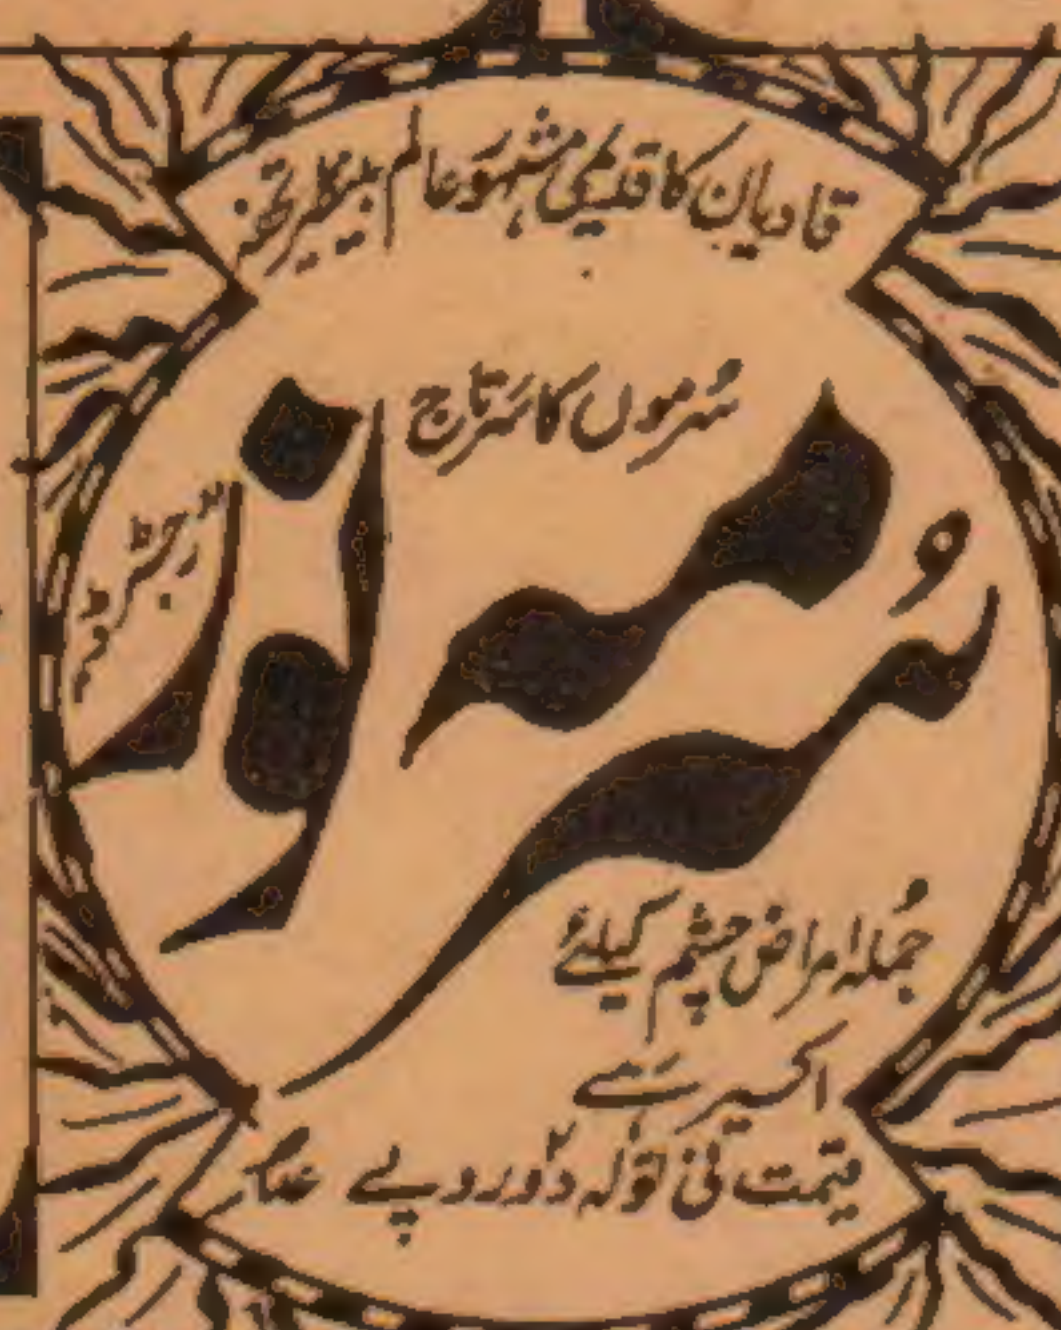 قادیان کا قدیمی مشہور عالم بینظیر تحفہ
سُرموں کا سَرتاج
سُرمہ نور
رجسٹرڈ
جُملہ امراض چشم کیلئے
اکسیر ہے
قیمت فی تولہ دو روپے